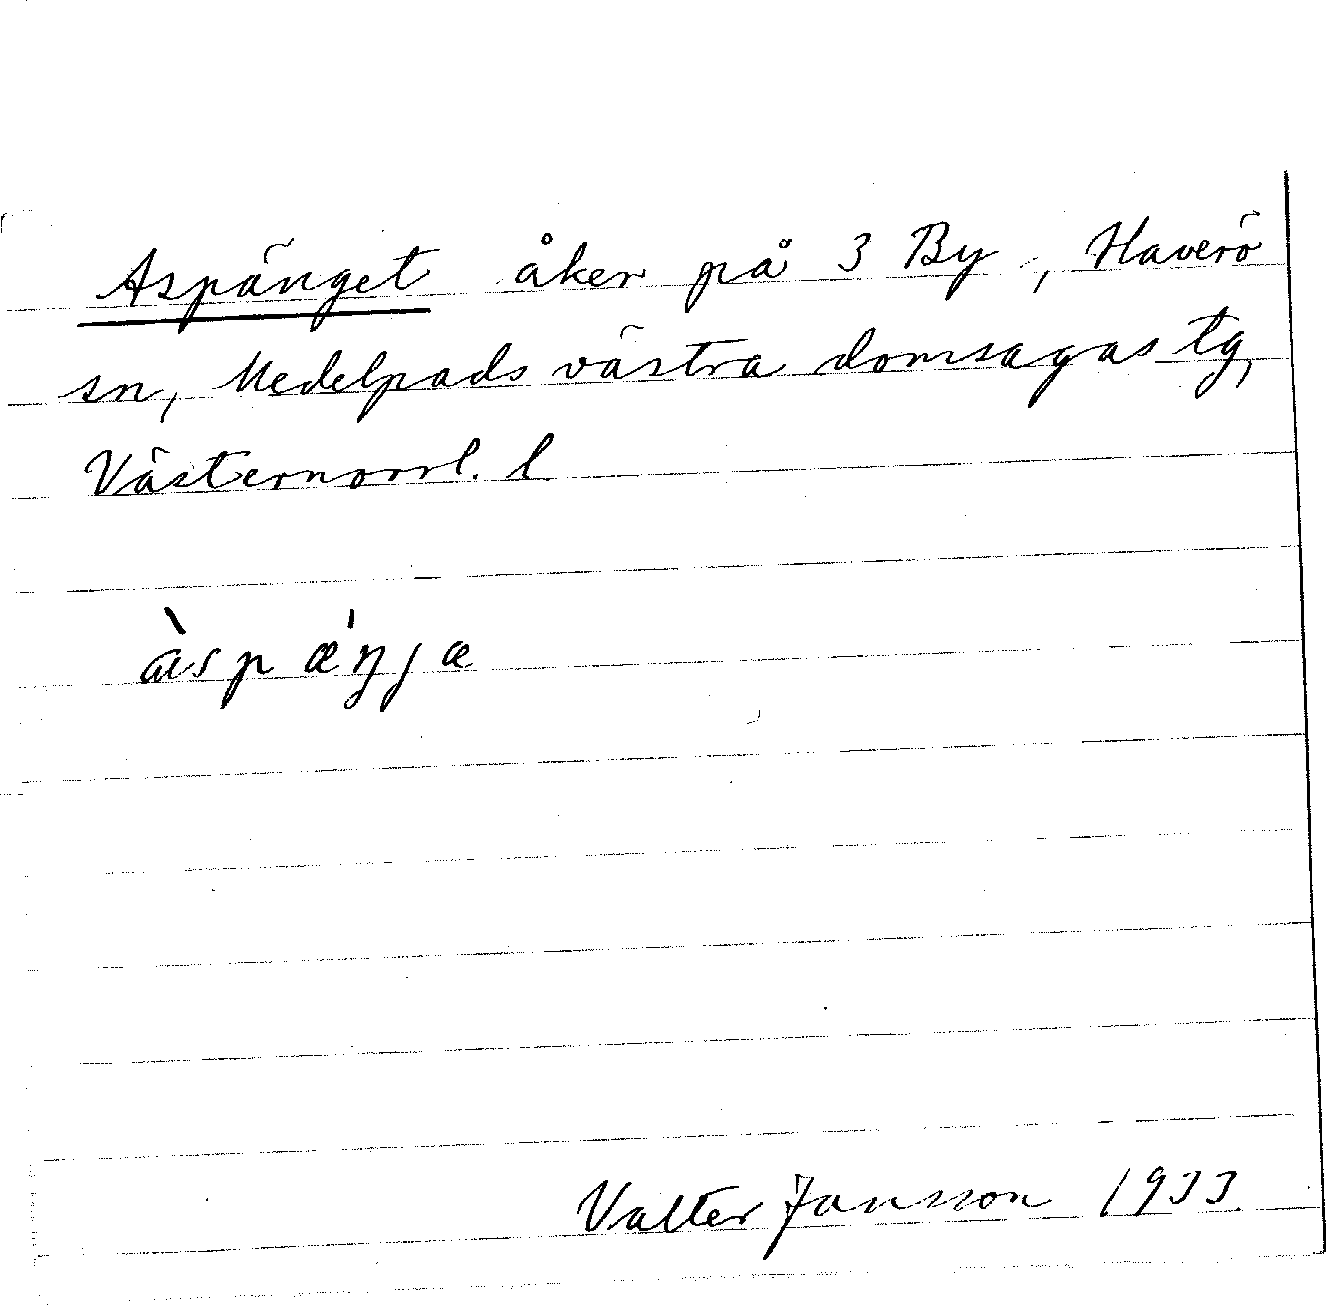 Aspänget åker på 3 By, Haverö
sn, Medelpads västra domsagas tg,
Västernorrl. l.
àspǽŋjæ
Valter Jansson 1933.